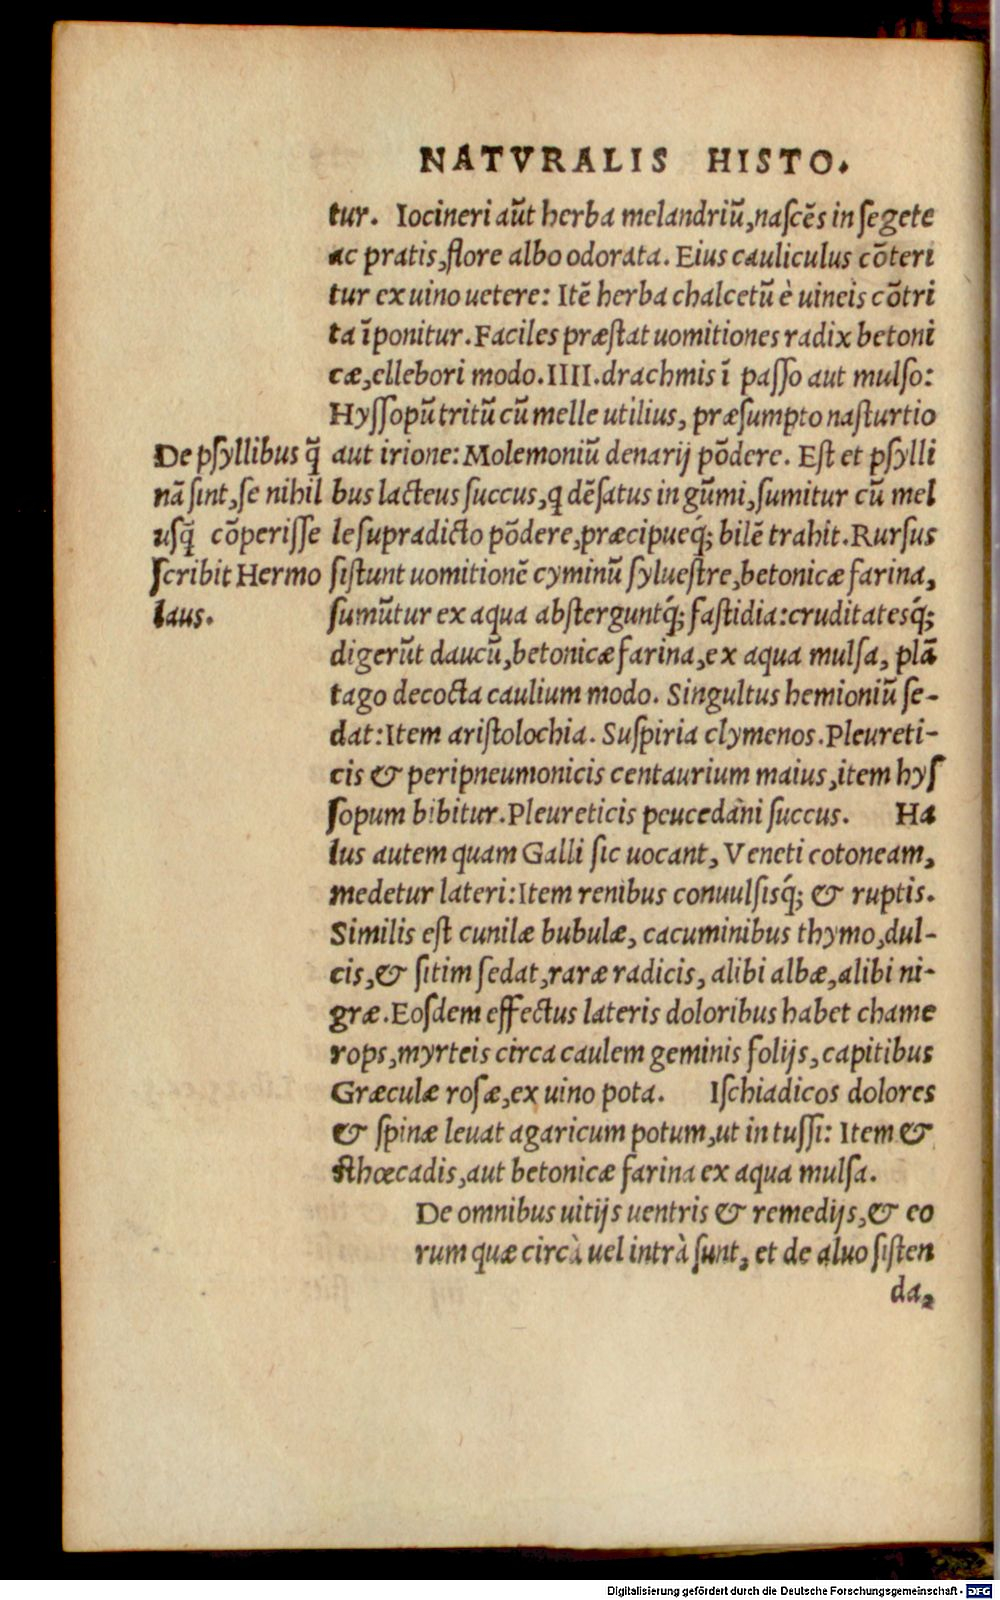 NATVRALIS HISTO.
tur. Iocineri aũt herba melandriũ,naſcẽs in ſegete
ac pratis,flore albo odorata. Eius cauliculus cõteri
tur ex uino uetere: Itẽ herba chalcetũ è uineis cõtri
ta ĩponitur.Faciles præſtat uomitiones radix betoni
cæ,ellebori modo.IIII.drachmis ĩ paſſo aut mulſo:
Hyſſopũ tritũ cũ melle utilius, præſumpto naſturtio
aut irione:Molemoniũ denarij põdere. Eſt et pſylli
bus lacteus ſuccus,q dẽſatus in gũmi,ſumitur cũ mel
le ſupradicto põdere,præcipueq́; bilẽ trahit.Rurſus
ſiſtunt uomitionẽ cyminũ ſylueſtre,betonicæ farina,
ſumũtur ex aqua abſterguntq́; faſtidia:cruditatesq́;
digerũt daucũ,betonicæ farina,ex aqua mulſa, plã
tago decocta caulium modo. Singultus hemioniũ ſe-
dat:Item ariſtolochia. Suſpiria clymenos.Pleureti-
cis & peripneumonicis centaurium maius,item hyſ
ſopum bibitur.Pleureticis peucedàni ſuccus. Ha
lus autem quam Galli ſic uocant, Veneti cotoneam,
medetur lateri:Item renibus conuulſisq́; & ruptis.
Similis eſt cunilæ bubulæ, cacuminibus thymo,dul-
cis,& ſitim ſedat,raræ radicis, alibi albæ,alibi ni-
græ.Eoſdem effectus lateris doloribus habet chame
rops,myrteis circa caulem geminis folijs,capitibus
Græculæ roſæ,ex uino pota. Iſchiadicos dolores
& ſpinæ leuat agaricum potum,ut in tuſſi: Item &
ſthœcadis,aut betonicæ farina ex aqua mulſa.
De omnibus uitijs uentris & remedijs,& eo
rum quæ circà uel intrà ſunt, et de aluo ſiſten
da,
De pſyllibus q̃
nã ſint,ſe nihil
uſq̃ cõperiſſe
ſcribit Hermo
laus.
Digitalisierung gefördert durch die Deutsche Forschungsgemeinschaft - DFG